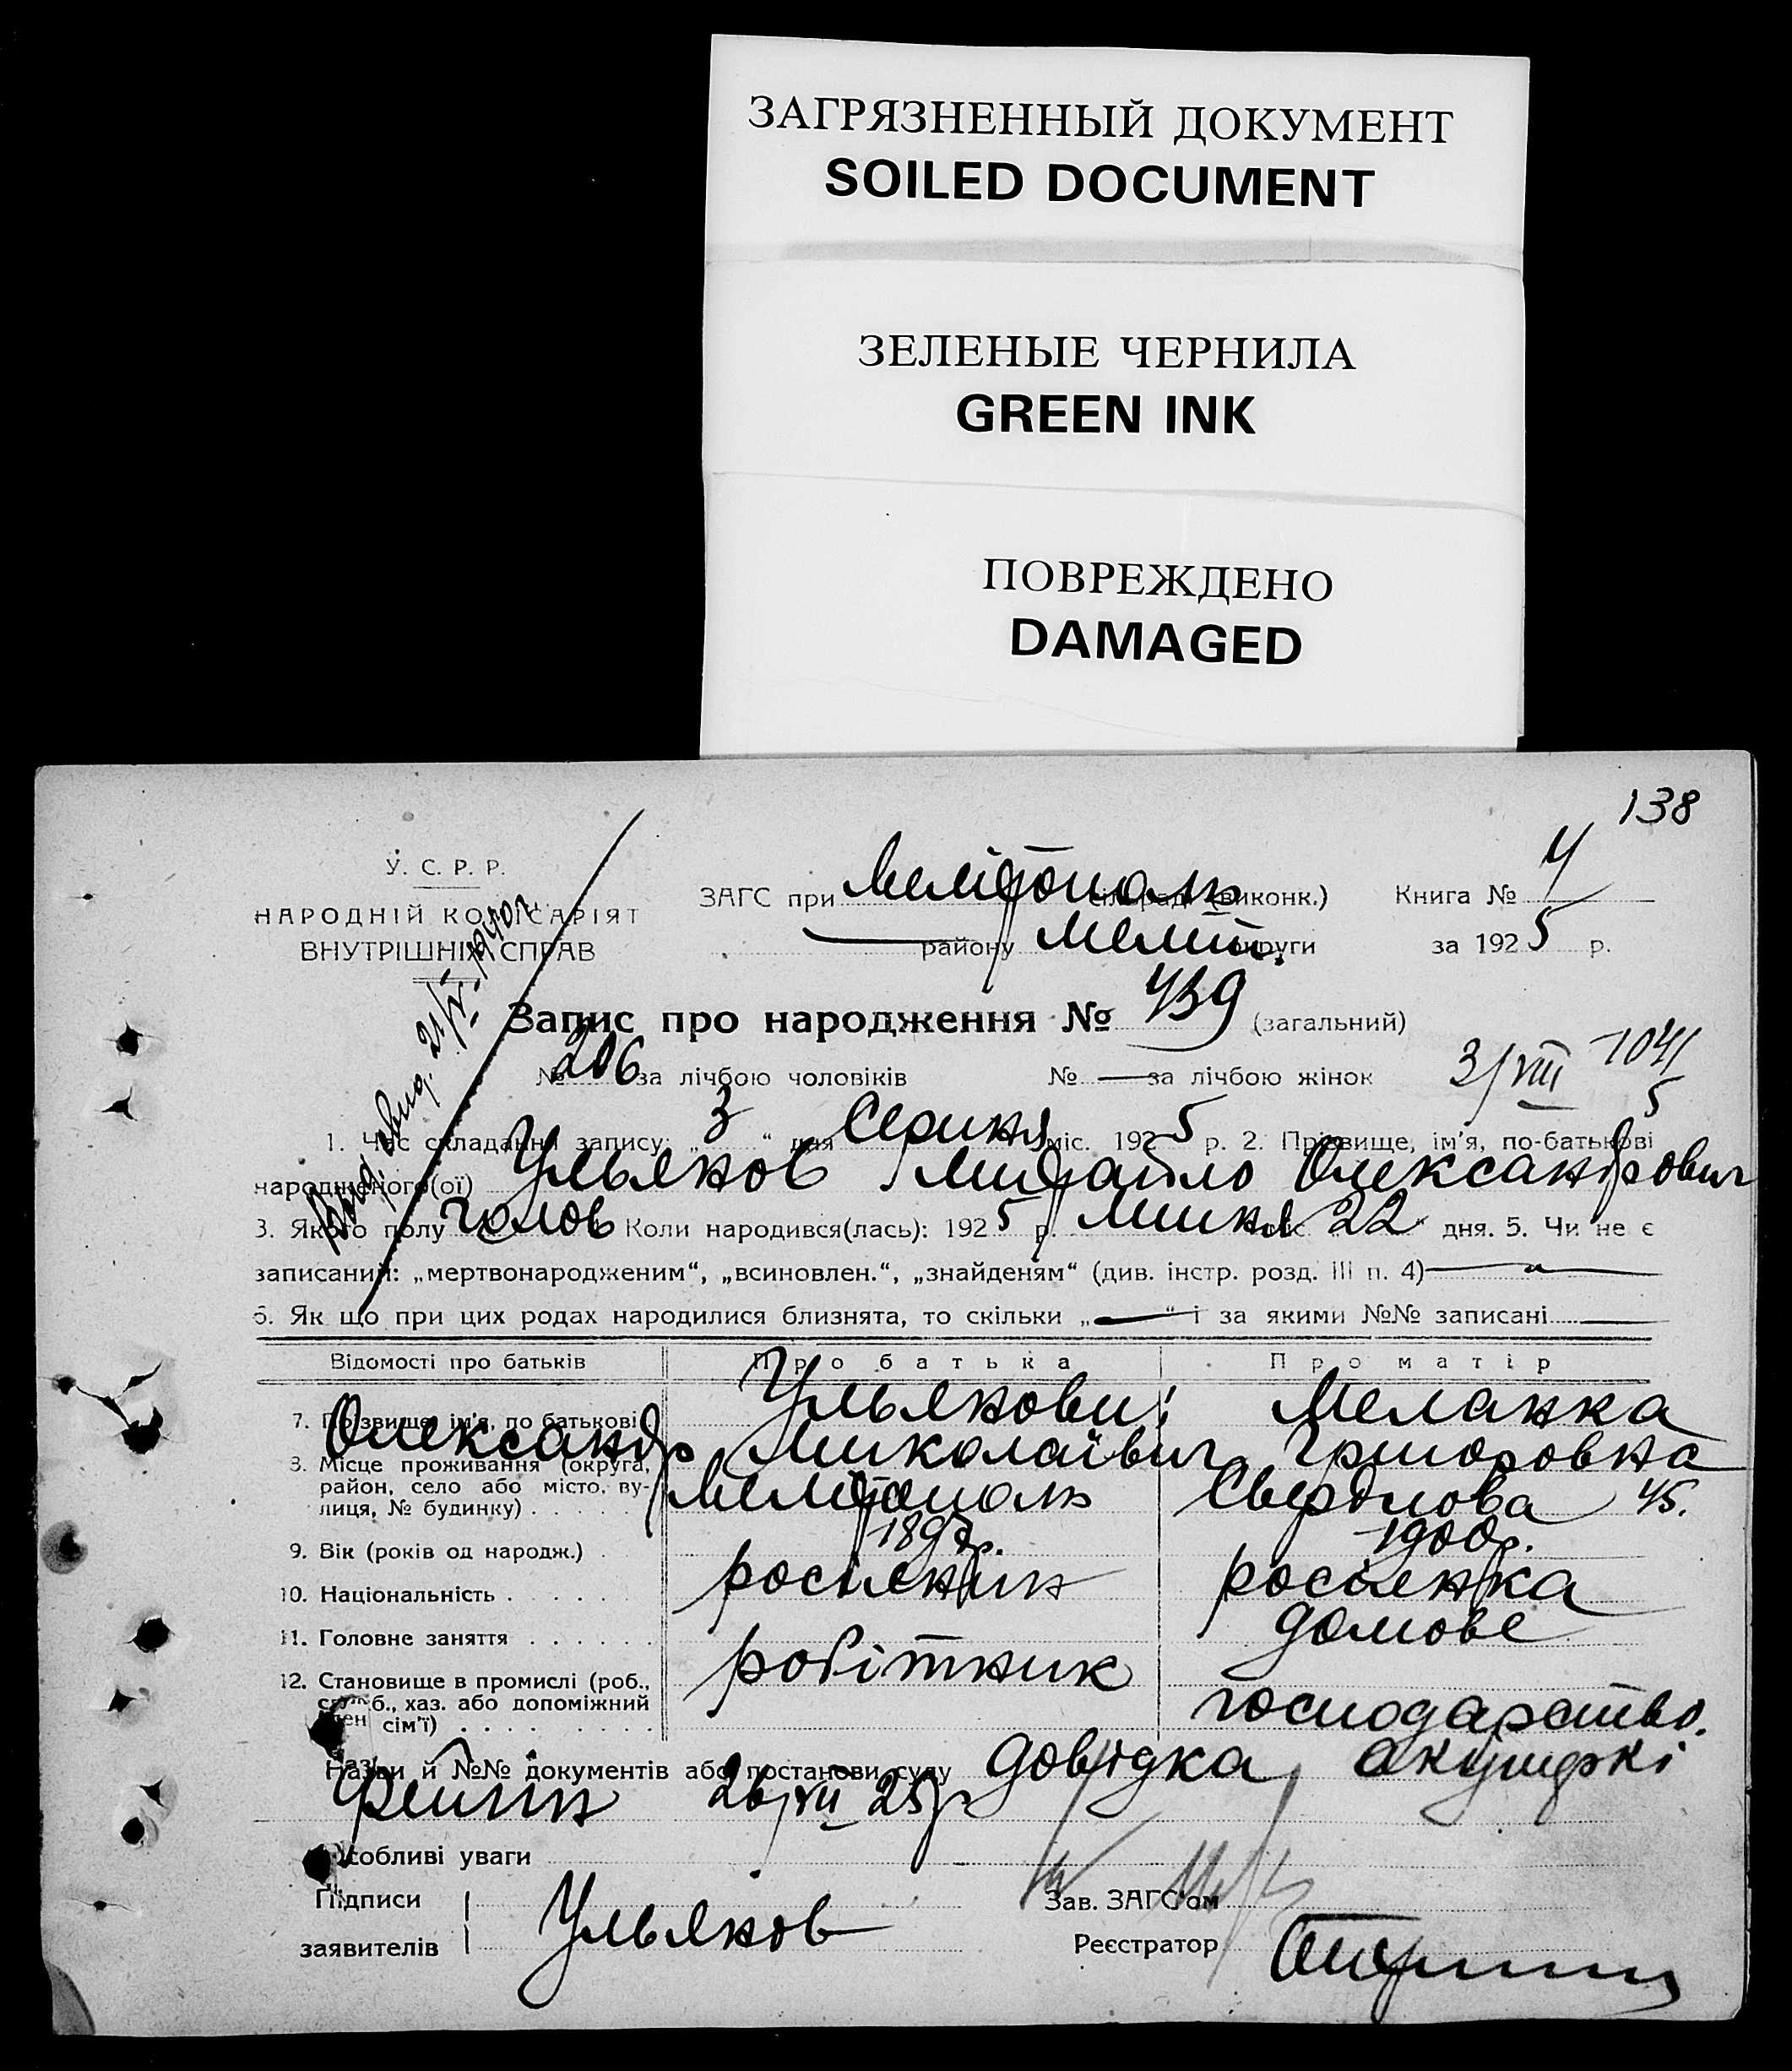 ЗАГРЯЗНЕННЫЙ ДОКУМЕНТ
SOILED DOCUMENT
ЗЕЛЕНЫЕ ЧЕРНИЛА
GREEN INK
ПОВРЕЖДЕНО
DAMAGED
138
У. С. Р. Р.
НАРОДНІЙ КОМІСАРІЯТ
ВНУТРІШНІХ СПРАВ
ЗАГС при Мелітополь сільраді (виконк.) Книга № 4
— району Меліт. округи за 1925 р.
Запис про народження № 439 (загальний)
№ 206 за лічбою чоловіків № — за лічбою жінок 3/VIII
1. Час складання запису: „3“ дня Серпня міс. 1925 р. 2. Прізвище, ім'я, по-батькові
народженого(ої) Ульянов Михайло Олександрович
3. Якого полу чолов Коли народився(лась): 1925 р. Липня міс 22 дня. 5. Чи не є
записаний: „мертвонародженим“, „всиновлен.“, „знайденям“ (див. інстр. розд. III п. 4) —
6. Як що при цих родах народилися близнята, то скільки „—“ і за якими №№ записані —
Відомості про батьків Про батька Про матір
7. Прізвище, ім'я, по батькові Ульянови: Меланка
Олександр Миколаївич Григоровна
8. Місце проживання (округа, район, село або місто, вулиця, № будинку) Мелітополь Свердлова 45.
9. Вік (років од народж.) 1897р. 1900р.
10. Національність росіянин росіянка
11. Головне заняття робітник домове
12. Становище в промислі (роб., служб., хаз. або допоміжний член сім'ї) господарство.
Назви й №№ документів або постанови суду довідка акушерки
26/VII 25р
Особливі уваги
Підписи
заявителів Ульянов
Зав. ЗАГС'ом
Реєстратор